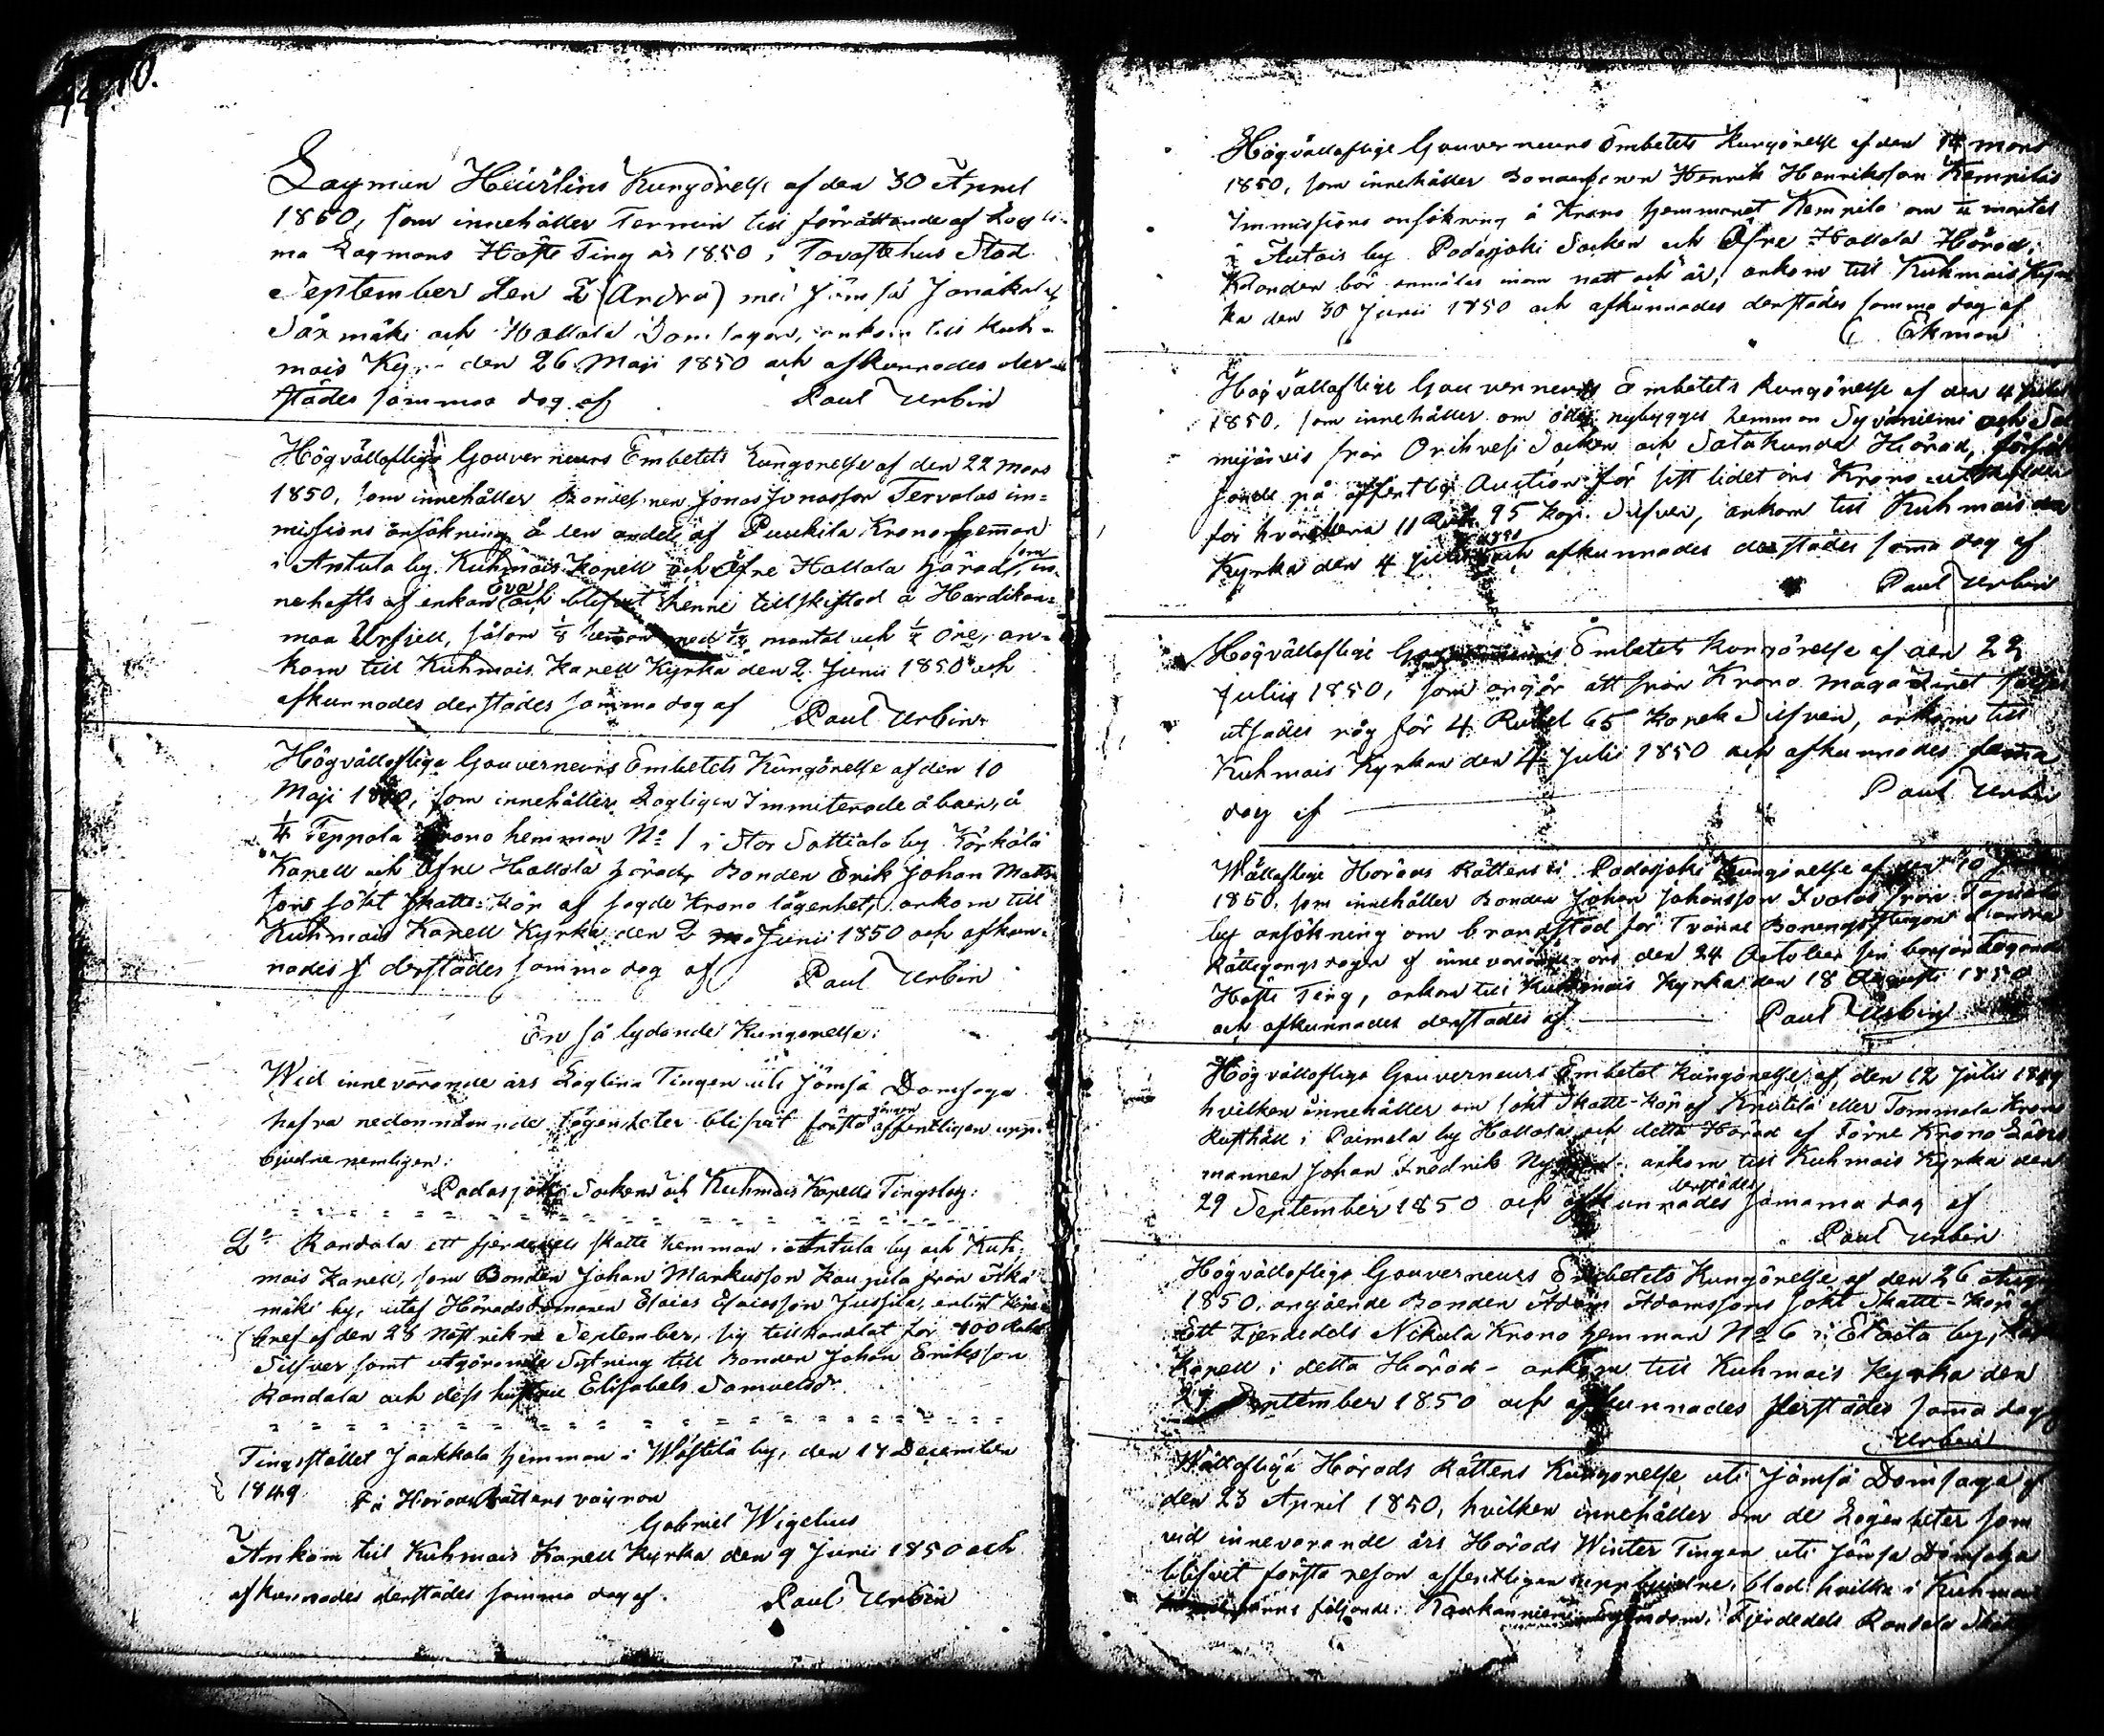 Lagman Heurlins Kungörelse af den 30 April
1850, som innehåller Termin till förrättande af Lagti-
ma Lagmans Höste Ting år 1850 i Tavastehus Stad
September den 2 (Andra) med Jämsä Janakala
Säxmäki och Hollola Domsagor, ankom till Kuh-
mois Kyrka den 26 Maji 1850 och afkunnades der-
städes samma dag af Paul Urbin
Högvälloflige Gouverneurs Embetets Kungörelse af den 22 Mars
1850, som innehåller Bondesonen Jonas Jonasson Tervalas im-
missions ansökning å den andel af Puukila Kronohemman
i Antula by Kuhmois Kapell och Öfre Hollola härad, som in-
nehafts af enkan Eva och blifvit henne tillskiftad å Hardikan-
maa Urfjell, såsom 1/8 hemman med mantal och öre, an-
kom till Kuhmois Kapell Kyrka den 2 Junii 1850 och
afkunnades derstädes samma dag af Paul Urbin
Högvällofliga Gouverneurs Embetets Kungörelse af den 10
Maji 1850, som innehåller Lagligen Immiterade åboen å
1/4 Teppola Krono hemman No 1 i Stor Sattiala by Kärkölä
Kapell och Öfre Hollola härad, Bonden Erik Johan Matts-
sons sökt Skatte-köp af sagde Krono lägenhet, ankom till
Kuhmois Kapell Kyrka den 2 Junii 1850 och afkun-
nades derstädes samma dag af Paul Urbin
En så lydande Kungörelse:
Wid innevarande års Lagtima Tingen uti Jämsä Domsaga
hafva nedannämnde lägenheter blifvit första gången offentligen upp-
bjudne nemligen:
Padasjoki Socken och Kuhmois Kapells Tingslag:
2o Randala ett fjerdedels skatte hemman i Antula by och Kuh-
mois Kapell, som Bonden Johan Markusson Kaupila från
mäki by, utaf Häradsdomaren Esaias Esaiasson Jussila, enligt Köpe-
bref af den 28 nästvikne September, sig tillhandlat för 400 Rubel
Silfver samt utgörande Sytning till Bonden Johan Eriksson
Randala och dess hustru Elisabeth Samuelsdr
Tingsstället Jaakkola hemman i Wästilä by, den 14 December
1849 På HäradsRättens vägnar
Gabriel Wigelius
Ankom till Kuhmois Kapell Kyrka den 9 Junii 1850 och
afkunnades derstädes samma dag af Paul Urbin
Högvälloflige Gouverneurs Embetets Kungörelse af den 14 Mars
1850, som innehåller Bondesonen Henrik Henriksson Kempilas
Immissions ansökning å Krono hemmanet Kempila om mantal
i Autois by Padasjoki Socken och Öfre Hollola Härad;
Klander bör anmälas inom natt och år; ankom till Kuhmois Kyr-
ka den 30 Junii 1850 och afkunnades derstädes samma dag af
C. Ekman
Högvällofliga Gouverneurs Embetets kungörelse af den 4
1850, som innehåller om öde nybygget hemman Syväniemi och
mijärvis från Orihvesi Socken och Satakunda Härad,
på offentlig Auction för sistlidet års Krono utskylder
för hvardera 11 Rub. 95 kop. Silfver, ankom till Kuhmois
Kyrka den 4 Julii 1850 och afkunnades derstädes sama dag af
Paul Urbin
Högvällofligе Embetets kungörelse af den 22
Julii 1850, som angår att från Krono magazinet säljes
utsädes råg för 4 Rubel 65 kopek Silfver, ankom till
Kuhmois Kyrkan den 4 Julii 1850 och afkunnades sama
dag af Paul Urbin
Wällofliga Härads Rättens i Padasjoki Kungörelse af den 10
1850, som innehåller Bonden Johan Johansson Ivalas från
by ansökning om brandstod för Tvänne
Rättegångs dagen af innevarande års den 24 October sin början tagande
Höste Ting, ankom till Kuhmois Kyrka den 18 Augusti 1850
och afkunnades derstädes af Paul Urbin
Högvällofliga Gouverneurs Embetet Kungörelse af den 12 Julii 1849
hvilken innehåller om sökt Skatte-köp af Knutila eller Tommola Krono
Rusthåll i Paimela by Hollola och detta Härad af Förne Krono Läns-
mannen Johan Fredrik ankom till Kuhmois Kyrka den
29 September 1850 och afkunnades derstädes samma dag af
Paul Urbin
Högvällofliga Gouverneurs Embetets Kungörelse af den 26
1850, angående Bonden Adam Adamssons sökt Skatte-köp af
Ett Fjerdedels Nikula Krono hemman No 6 i by,
Kapell i detta Härad - ankom till Kuhmois Kyrka den
29 September 1850 och afkunnades derstädes sama dag
Urbin
Wällofliga Härads Rättens Kungörelse uti Jämsä Domsaga af
den 23 April 1850, hvilken innehåller om de Lägenheter som
vid innevarande års Härads Winter Tingen uti Jämsä Domsaga
blifvit första resan offentligen uppbjudne, bland hvilka i Kuhmois
finns följande: Fjerdedels Randala